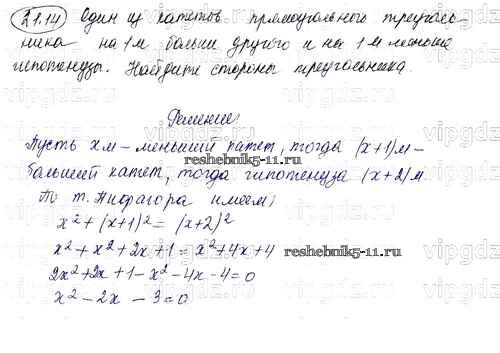 21.14 Один из катетов прямоугольного треуголь-
ника на 1 м больше другого и на 1 м меньше
гипотенузы. Найдите стороны треугольника.
Решение:
Пусть x м – меньший катет, тогда (x+1) м –
reshebnik5-11.ru
больший катет, тогда гипотенуза (x+2) м
По т. Пифагора имеем:
x² + (x+1)² = (x+2)²
x² + x² + 2x + 1 = x² + 4x + 4
reshebnik5-11.ru
2x² + 2x + 1 – x² – 4x – 4 = 0
x² – 2x – 3 = 0
vipgdz